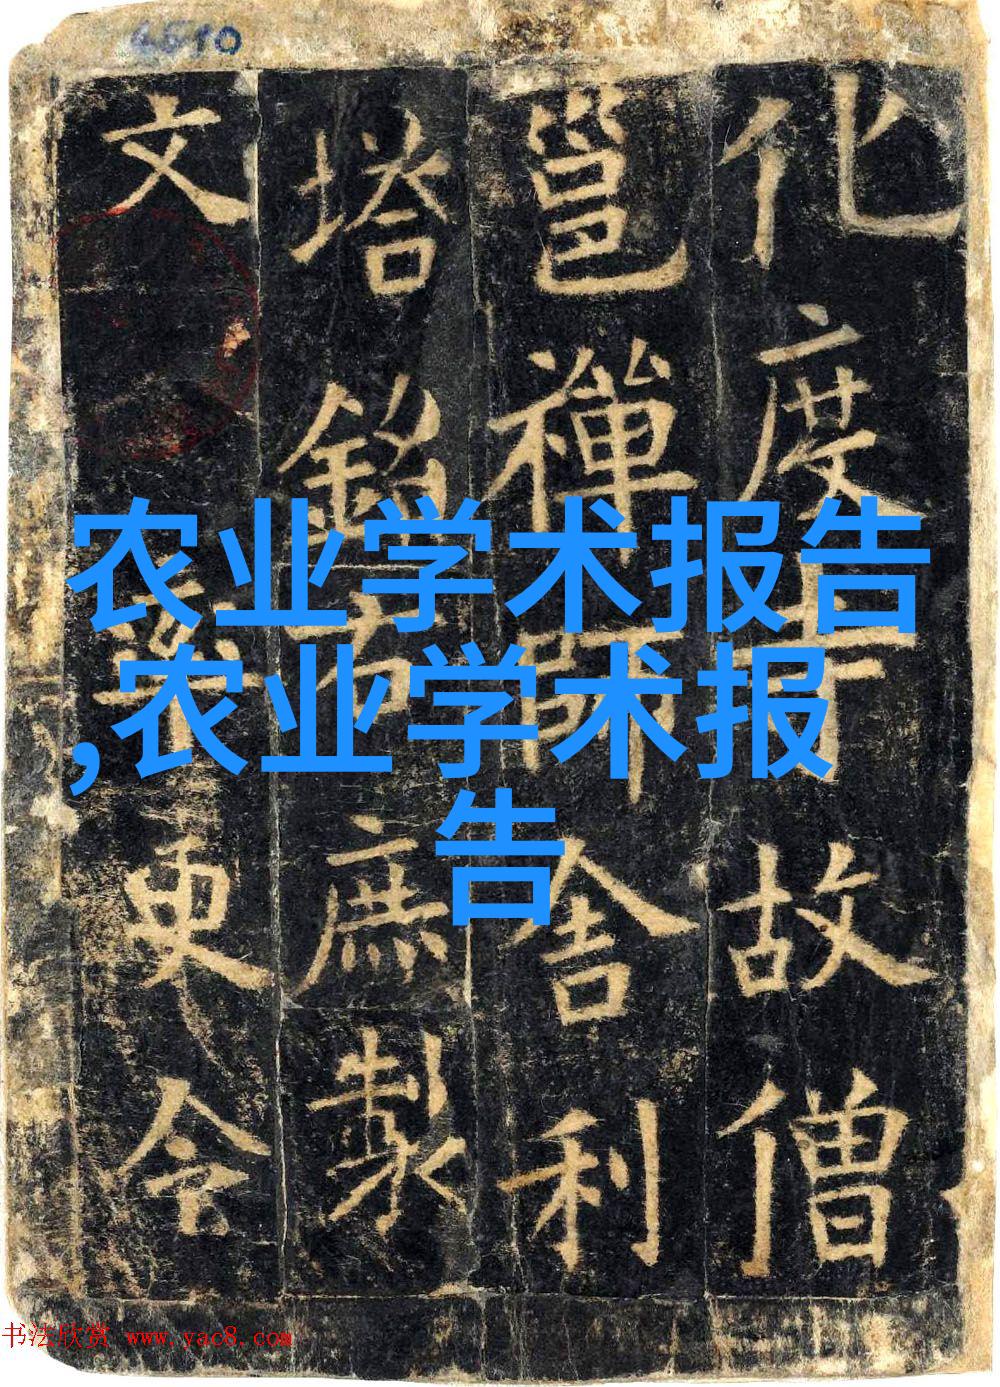 4510
化度寺故僧
邕禪師舍利
塔銘右庶製
文率更令
农业学术报告
,农业学术报
告
书法欣赏 www.yac8.com